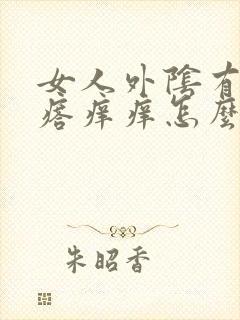 女人外陰有
瘩痒痒怎麼
朱昭香